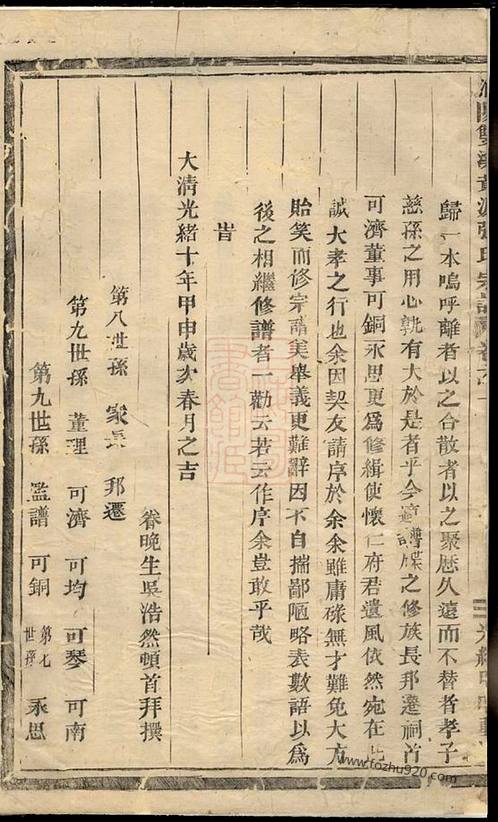 雙溪黃沙張氏宗譜卷之一
歸一本嗚呼離者以之合散者以之聚歷久遠而不替者孝子
慈孫之用心孰有大於是者乎今適譜牒之修族長邦遷祠首
可濟董事可銅永思更為修緝使懷仁府君遺風依然宛在
誠大孝之行也余因契友請序於余余雖庸碌無才難免大方
貽笑而修宗譜美舉義更難辭因不自揣鄙陋略表數語以為
後之相繼修譜者一勸云若云作序余豈敢乎哉
旹
大清光緒十年甲申歲次春月之吉
眷晚生吳浩然頓首拜撰
第八世孫 家長 邦遷
第九世孫 董理 可濟 可均 可琴 可南
第九世孫 監譜 可銅 第七世孫 永思
www.fozhu920.com